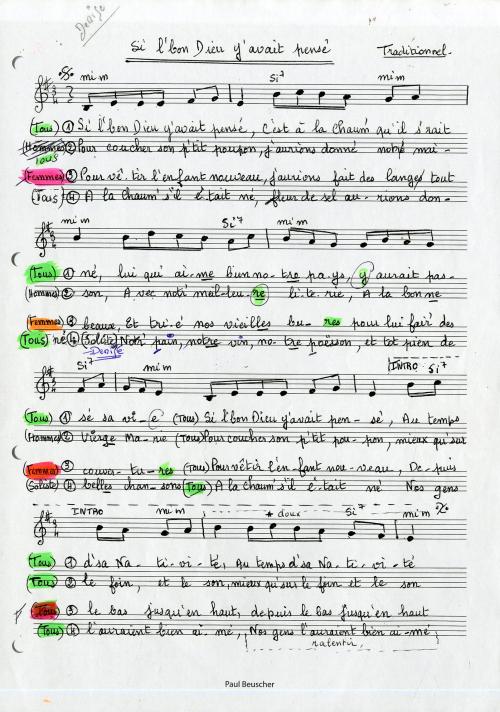 Denise
Si l'bon Dieu y'avait pensé
Traditionnel.
mi m Si7 mi m
(Tous) ① Si l'bon Dieu y'avait pensé, C'est à la Chaum' qu'il s'rait
(Hommes) ② Pour coucher son p'tit poupon, j'aurions donné notre mai-
Tous
(Femmes) ③ Pour vê-tir l'enfant nouveau, j'aurions fait des langes tout
(Tous) ④ A la Chaum' s'il é-tait né, fleur de sel au-rions don-
mi m Si7 mi m
(Tous) ① né, lui qui ai-me bien no-tre pa-ys, y aurait pas-
(Hommes) ② son, Avec notr' meil-leu-re li-te-rie, A la bonne
(Femmes) ③ beaux, Et tri-é nos vieilles bu-res pour lui fair' des
(Tous) né ④ (Soliste) Notr' pain, notre vin, no-tre poisson, et tot plen de
Denise
Si7 mi m INTRO Si7
(Tous) ① sé sa vi-e (Tous) Si l'bon Dieu y'avait pen-sé, Au temps
(Hommes) ② Vierge Ma-rie (Tous) Pour coucher son p'tit pou-pon, mieux qu' sur
(Femmes) ③ couver-tu-res (Tous) Pour vêtir l'en-fant nou-veau, De-puis
(Soliste) ④ belles chan-sons (Tous) A la Chaum' s'il é-tait né Nos gens
INTRO mi m * doux Si7 mi m
(Tous) ① d'sa Na-ti-vi-té, Au temps d'sa Na-ti-vi-té
(Tous) ② le foin, et le son, mieux qu' sur le foin et le son
(Tous) ③ le bas jusqu'en haut, depuis le bas jusqu'en haut
(Tous) ④ l'auraient bien ai-mé, Nos gens l'auraient bien ai-mé
ralentir
Paul Beuscher